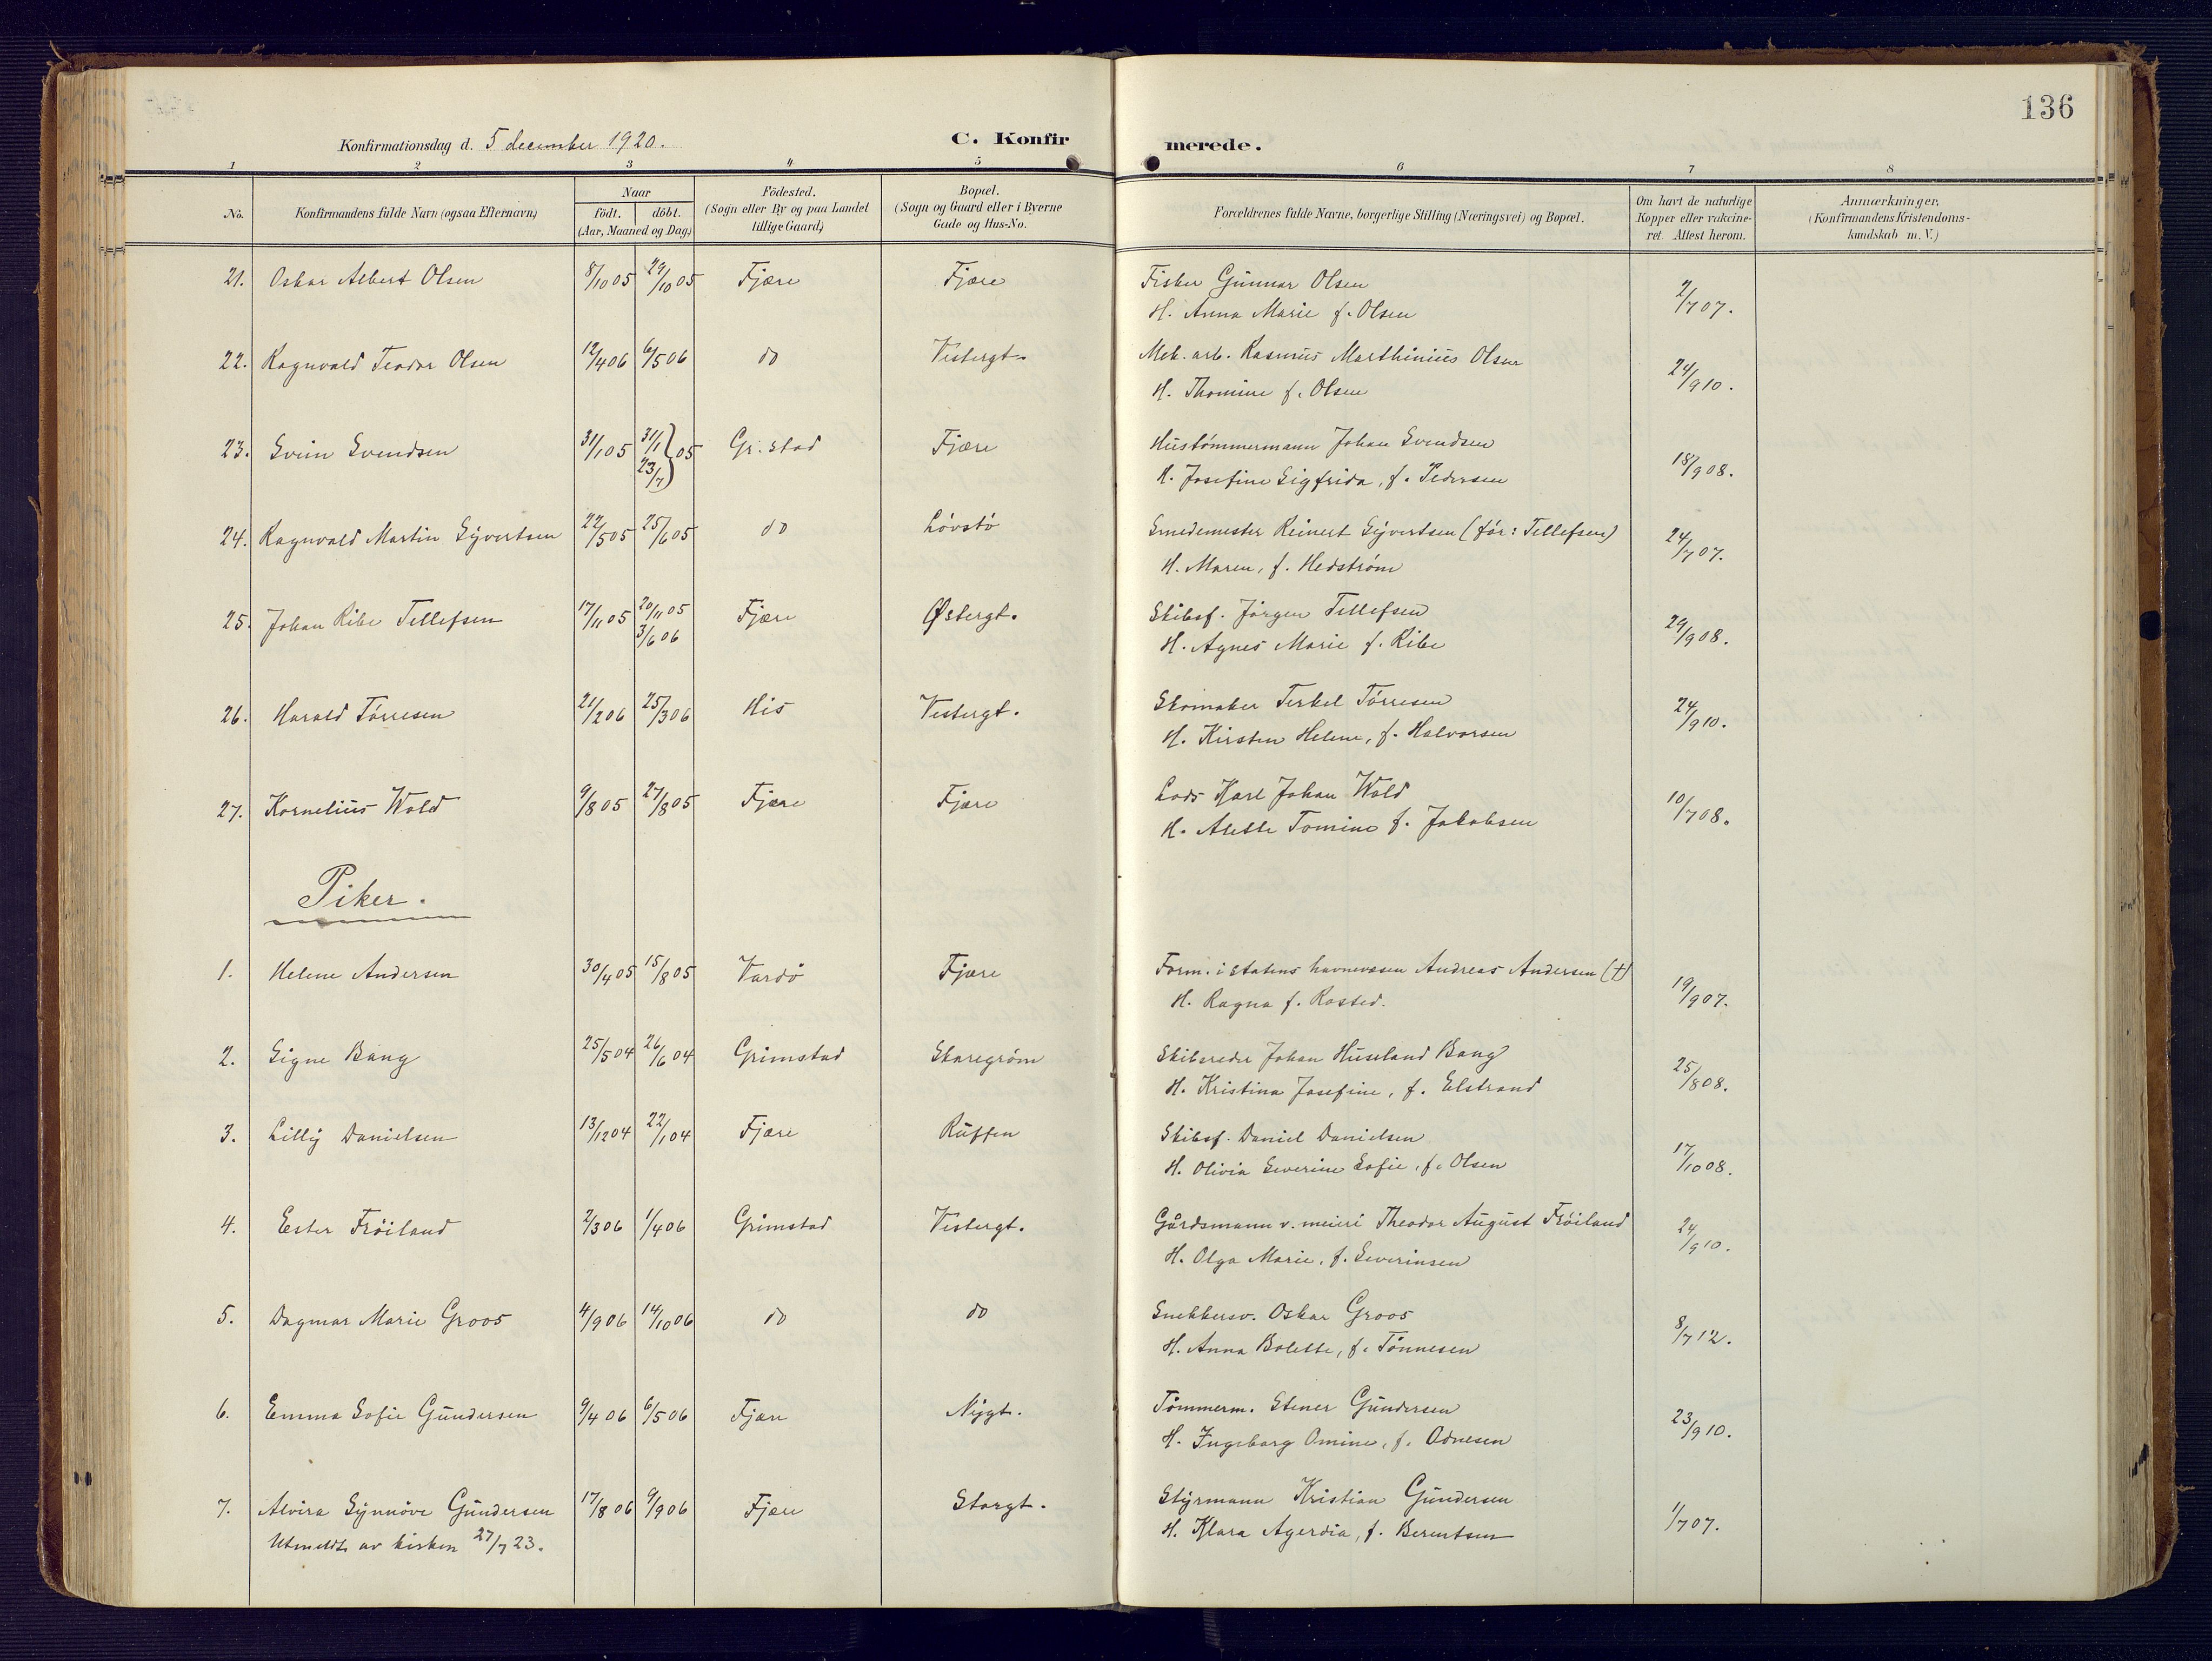 136
Konfirmationsdag d. 5 december 1920. C. Konfirmerede.
1 2 3 4 5 6 7 8
No. Konfirmandens fulde Navn (ogsaa Efternavn) Naar født. døbt. (Aar, Maaned og Dag) Fødested. (Sogn eller By og paa Landet tillige Gaard) Bopæl. (Sogn og Gaard eller i Byerne Gade og Hus-No. Forældrenes fulde Navne, borgerlige Stilling (Næringsvei) og Bopæl. Om havt de naturlige Kopper eller vakcineret. Attest herom. Anmærkninger. (Konfirmandens Kristendomskundskab m. V.)
21. Oskar Albert Olsen 8/10 05 29/10 05 Fjære Fjære Fisker Gunnar Olsen 2/7 07.
H. Anna Marie f. Olsen
22. Ragnvald Teodor Olsen 12/4 06 6/5 06 do Vestergt. Mek. arb. Rasmus Marthinius Olsen 24/9 10.
H. Thomine f. Olsen
23. Svein Svendsen 31/1 05 31/1 23/7 } 05 Gr.stad Fjære Hustømmermann Johan Svendsen 18/9 08.
H. Josefine Sigfrida, f. Pedersen
24. Ragnvald Martin Syvertsen 22/5 05 25/6 05 do Løvstø Smedemester Reinert Syvertsen (før: Tellefsen) 24/7 07.
H. Maren, f. Hedstrøm
25. Johan Ribe Tellefsen 17/11 05 20/11 05 Fjære Østergt. Skibsf. Jørgen Tellefsen 29/9 08.
3/6 06 H. Agnes Marie f. Ribe
26. Harald Tørresen 21/2 06 25/3 06 His Vestergt. Skomaker Terkel Tørresen 24/9 10.
H. Kirsten Helene, f. Halvorsen
27. Kornelius Wold 9/8 05 27/8 05 Fjære Fjære Lods Karl Johan Wold 10/7 08.
H. Alette Tomine f. Jakobsen
Piker.
1. Helene Andersen 30/4 05 15/8 05 Vardø Fjære Form. i statens havnevæsen Andreas Andersen (†) 19/9 07.
H. Ragna f. Rosted.
2. Signe Bang 25/5 04 26/6 04 Grimstad Skaregrøm Skibsreder Johan Huseland Bang 25/8 08.
H. Kristina Josefine, f. Elstrand
3. Lilly Danielsen 13/12 04 22/1 04 Fjære Ruffen Skibsf. Daniel Danielsen 17/10 08.
H. Olivia Severine Sofie, f. Olsen
4. Ester Frøiland 2/3 06 1/4 06 Grimstad Vestergt. Gårdsmann v. meieri Theodor August Frøiland 24/9 10.
H. Olga Marie, f. Severinsen
5. Dagmar Marie Groos 4/9 06 14/10 06 do do Snekkersv. Oskar Groos 8/7 12.
H. Anna Bolette, f. Tønnesen
6. Emma Sofie Gundersen 9/4 06 6/5 06 Fjære Nygt. Tømmerm. Stener Gundersen 23/9 10.
H. Ingeborg Omine, f. Odnesen
7. Alvira Synnøve Gundersen 17/8 06 9/9 06 Fjære Storgt. Styrmann Kristian Gundersen 1/7 07.
Utmeldt av kirken 27/7 23. H. Klara Agerdia, f. Berentsen